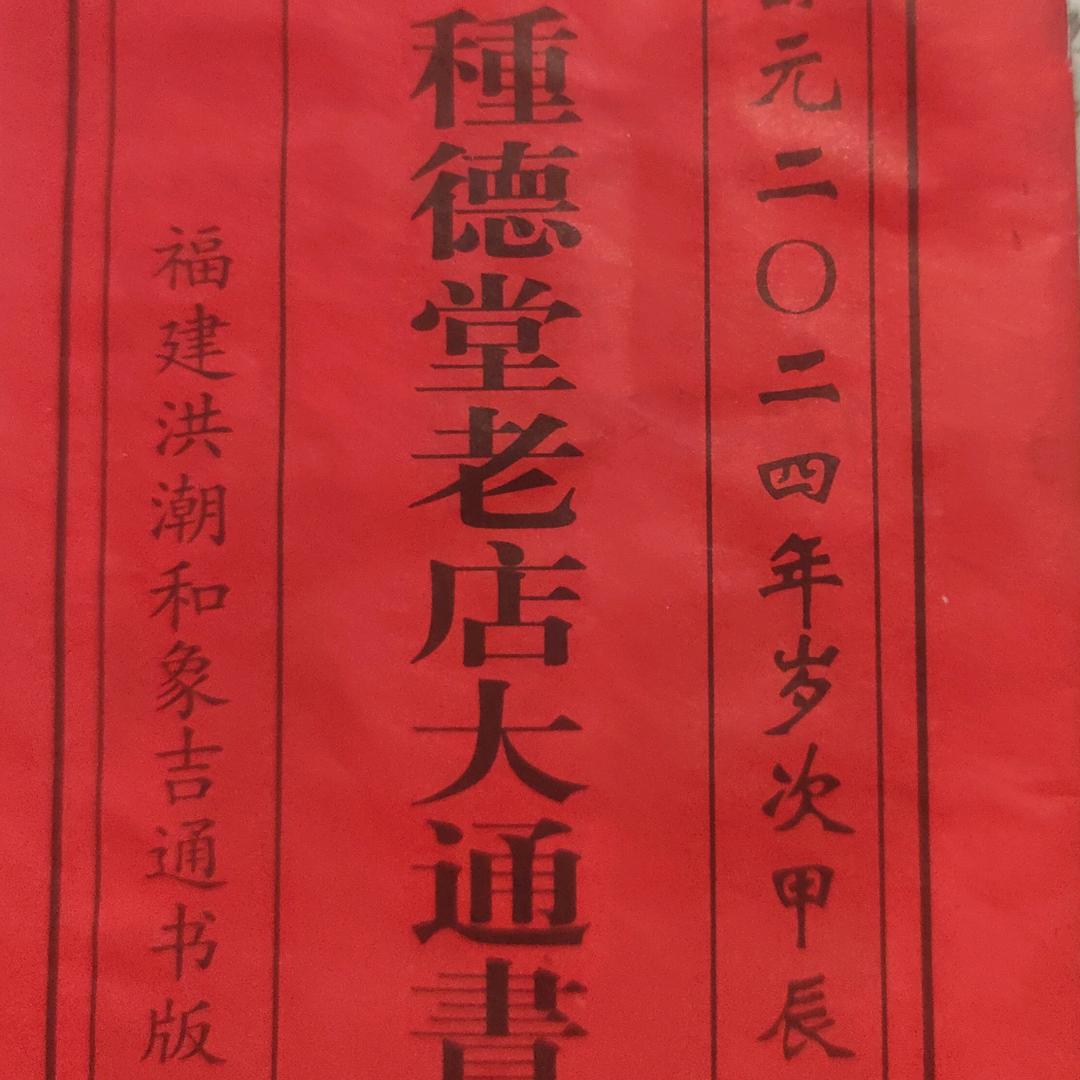 元二〇二四年岁次甲辰
種德堂老店大通書
福建洪潮和象吉通书版